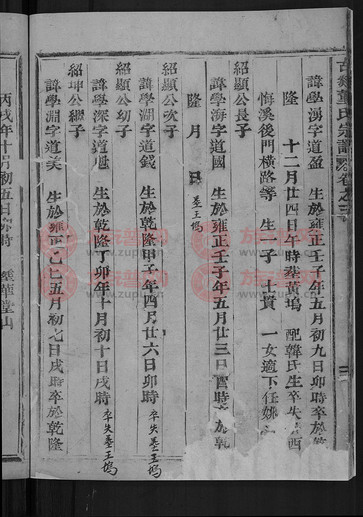 古 董氏宗譜 卷之三
諱學湧字道盈 生於雍正壬子年五月初九日卯時卒於乾
隆 十二月廿四日午時葬黃塢 配韓氏生卒失 西
悔溪後門橫路等 生 子士貰 一女適下任姚
紹顯公長子
諱學海字道國 生於雍正壬子年五月廿三日寅時 於乾
隆 月 日 墓王塢
紹顯公次子
諱學 字道錢 生於乾隆甲子年四月廿六日卯時 卒失墓王塢
紹顯公幼子
諱學深字道 生於乾隆丁卯年十月初十日戌時 卒失墓王塢
紹坤公繼子
諱學淵字道美 生於雍正乙巳五月初七日戌時卒於乾隆
丙戌年十月初五日 時 葬華 山
族谱网
www.zupu.cn